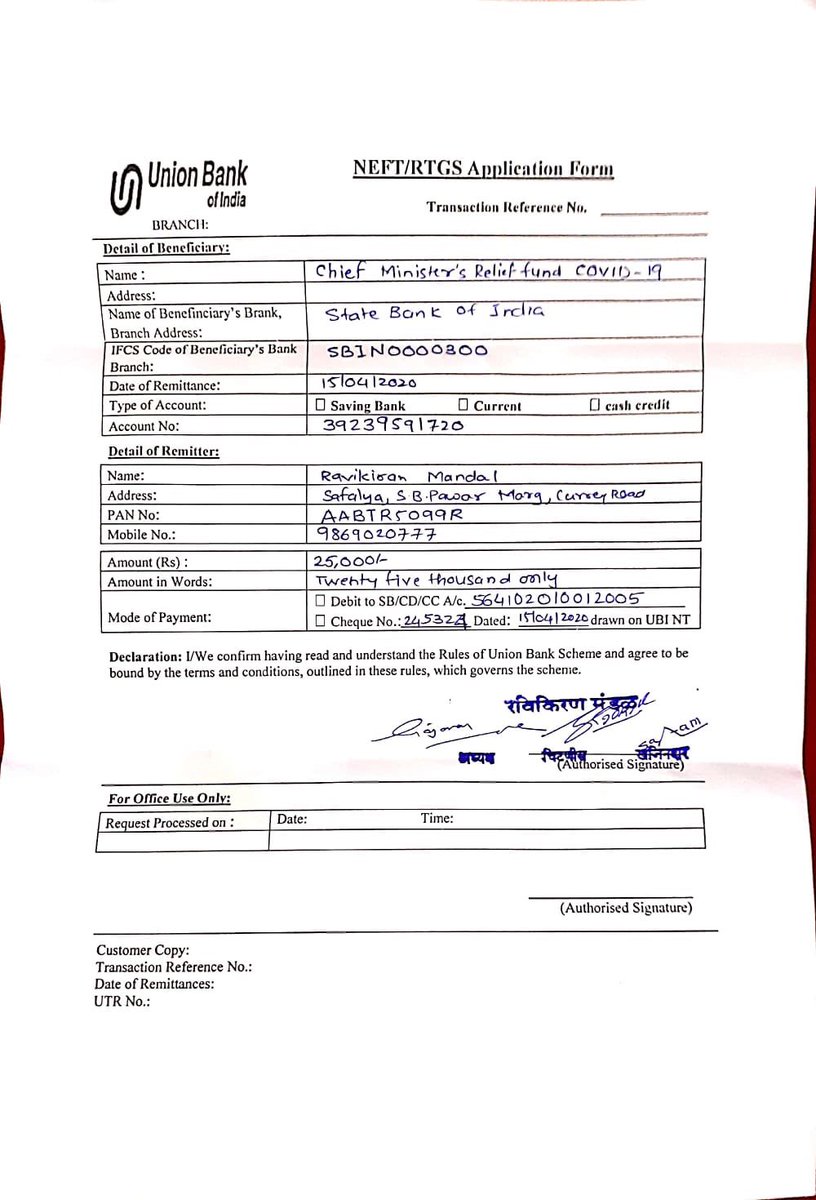 Union Bank
of India
NEFT/RTGS Application Form
Transaction Reference No.
BRANCH:
Detail of Beneficiary:
Name : Chief Minister's Relief fund COVID-19
Address:
Name of Benefinciary's Brank, Branch Address: State Bank of India
IFCS Code of Beneficiary's Bank Branch: SBIN0000300
Date of Remittance: 15/04/2020
Type of Account: Saving Bank Current cash credit
Account No: 39239591720
Detail of Remitter:
Name: Ravikiran Mandal
Address: Safalya, S B. Pawar Marg, Currey Road
PAN No: AABTR5099R
Mobile No.: 9869020777
Amount (Rs) : 25,000/-
Amount in Words: Twenty five thousand only
Mode of Payment: Debit to SB/CD/CC A/c. 564102010012005
Cheque No.: 24532 Dated: 15/04/2020 drawn on UBI NT
Declaration: I/We confirm having read and understand the Rules of Union Bank Scheme and agree to be
bound by the terms and conditions, outlined in these rules, which governs the scheme.
रविकिरण मंडळ
अध्यक्ष चिटणीस खजिनदार
(Authorised Signature)
For Office Use Only:
Request Processed on : Date: Time:
(Authorised Signature)
Customer Copy:
Transaction Reference No.:
Date of Remittances:
UTR No.: